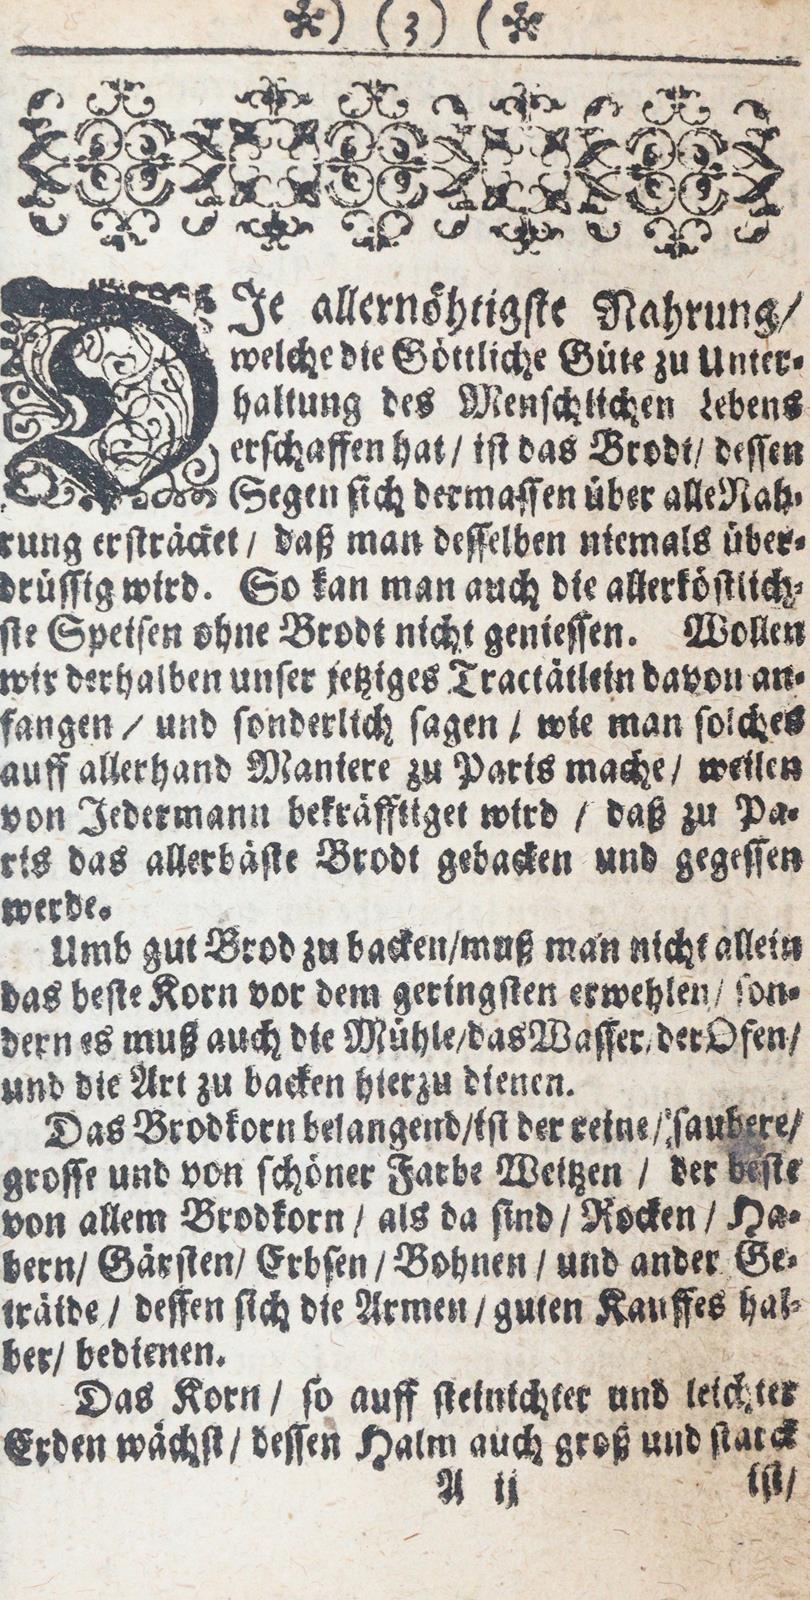 *) (3) (*
DIe allernöhtigste Nahrung/
welche die Göttliche Güte zu Unter-
haltung des Menschlichen Lebens
erschaffen hat/ ist das Brodt/ dessen
Segen sich dermassen über alle Nah-
rung ersträcket/ daß man desselben niemals über-
drüssig wird. So kan man auch die allerköstlich-
ste Speisen ohne Brodt nicht geniessen. Wollen
wir derhalben unser jetziges Tractätlein davon an-
fangen/ und sonderlich sagen/ wie man solches
auff allerhand Maniere zu Paris mache/ weilen
von Jedermann bekräfftiget wird/ daß zu Pa-
ris das allerbäste Brodt gebacken und gegessen
werde.
Umb gut Brod zu backen/ muß man nicht allein
das beste Korn vor dem geringsten erwehlen/ son-
dern es muß auch die Mühle/ das Wasser/ der Ofen/
und die Art zu backen hierzu dienen.
Das Brodkorn belangend/ ist der reine/ saubere/
grosse und von schöner Farbe Weitzen/ der beste
von allem Brodkorn/ als da sind/ Rocken/ Ha-
bern/ Gärsten/ Erbsen/ Bohnen/ und ander Ge-
träide/ dessen sich die Armen/ guten Kauffes hal-
ber/ bedienen.
Das Korn/ so auff steinichter und leichter
Erden wächst/ dessen Halm auch groß und starck
A ij ist/